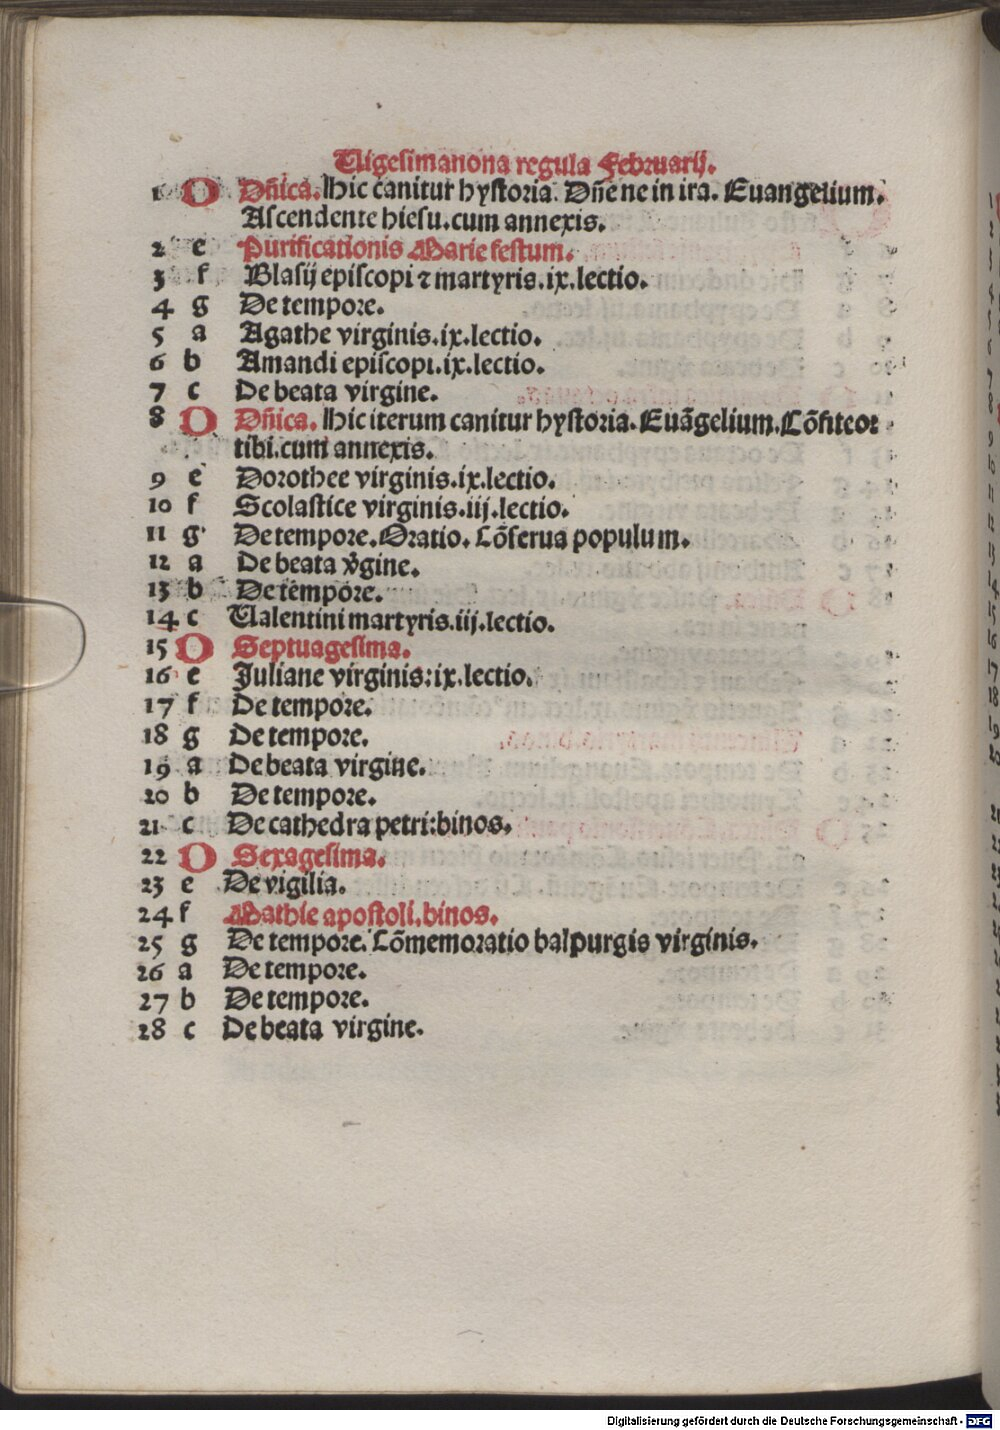 Uigesimanona regula Februarij.
1 D Dn̄ica. Hic canitur hystoria. Dn̄e ne in ira. Euangelium.
Ascendente hiesu. cum annexis.
2 e Purificationis Marie festum.
3 f Blasij episcopi ⁊ martyris. ix. lectio.
4 g De tempore.
5 a Agathe virginis. ix. lectio.
6 b Amandi episcopi. ix. lectio.
7 c De beata virgine.
8 D Dn̄ica. Hic iterum canitur hystoria. Euāgelium. Cōfiteor
tibi. cum annexis.
9 e Dorothee virginis. ix. lectio.
10 f Scolastice virginis. iij. lectio.
11 g De tempore. Oratio. Cōserua populum.
12 a De beata v̄gine.
13 b De tempore.
14 c Ualentini martyris. iij. lectio.
15 D Septuagesima.
16 e Juliane virginis: ix. lectio.
17 f De tempore.
18 g De tempore.
19 a De beata virgine.
20 b De tempore.
21 c De cathedra petri: binos.
22 D Sexagesima.
23 e De vigilia.
24 f Mathie apostoli. binos.
25 g De tempore. Cōmemoratio balpurgis virginis.
26 a De tempore.
27 b De tempore.
28 c De beata virgine.
Digitalisierung gefördert durch die Deutsche Forschungsgemeinschaft - DFG